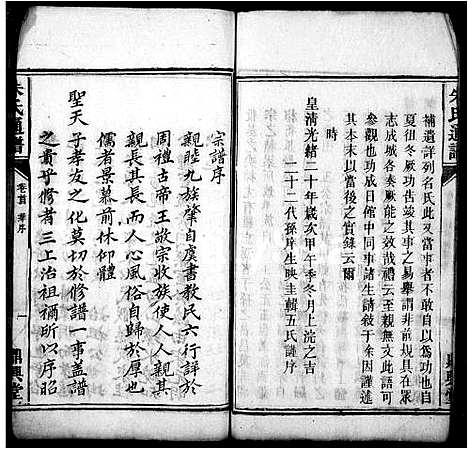 補遺詳列名氏此又當事者不敢自以為功也自
夏徂冬厥功告竣其事之易舉謂非前規具在眾
志成城各奏厥能之效哉禮云至親無文此語可
參觀也功成日館中同事諸生請敍于余因謹述
其本末以當後之實錄云爾
時
皇清光緒二十年歲次甲午季冬月上浣之吉
二十二代孫庠生映圭輯五氏謹序
朱氏通譜
宗譜序
親睦九族肇自虞書教民六行詳於
周禮古帝王敬宗收族使人人親其
親長其長而人心風俗自歸於厚也
儒者景慕前休仰體
聖天子孝友之化莫切於修譜一事蓋譜
之貴乎修者三上治祖禰所以序昭
朱氏通譜
卷首
序
一
鼎興堂